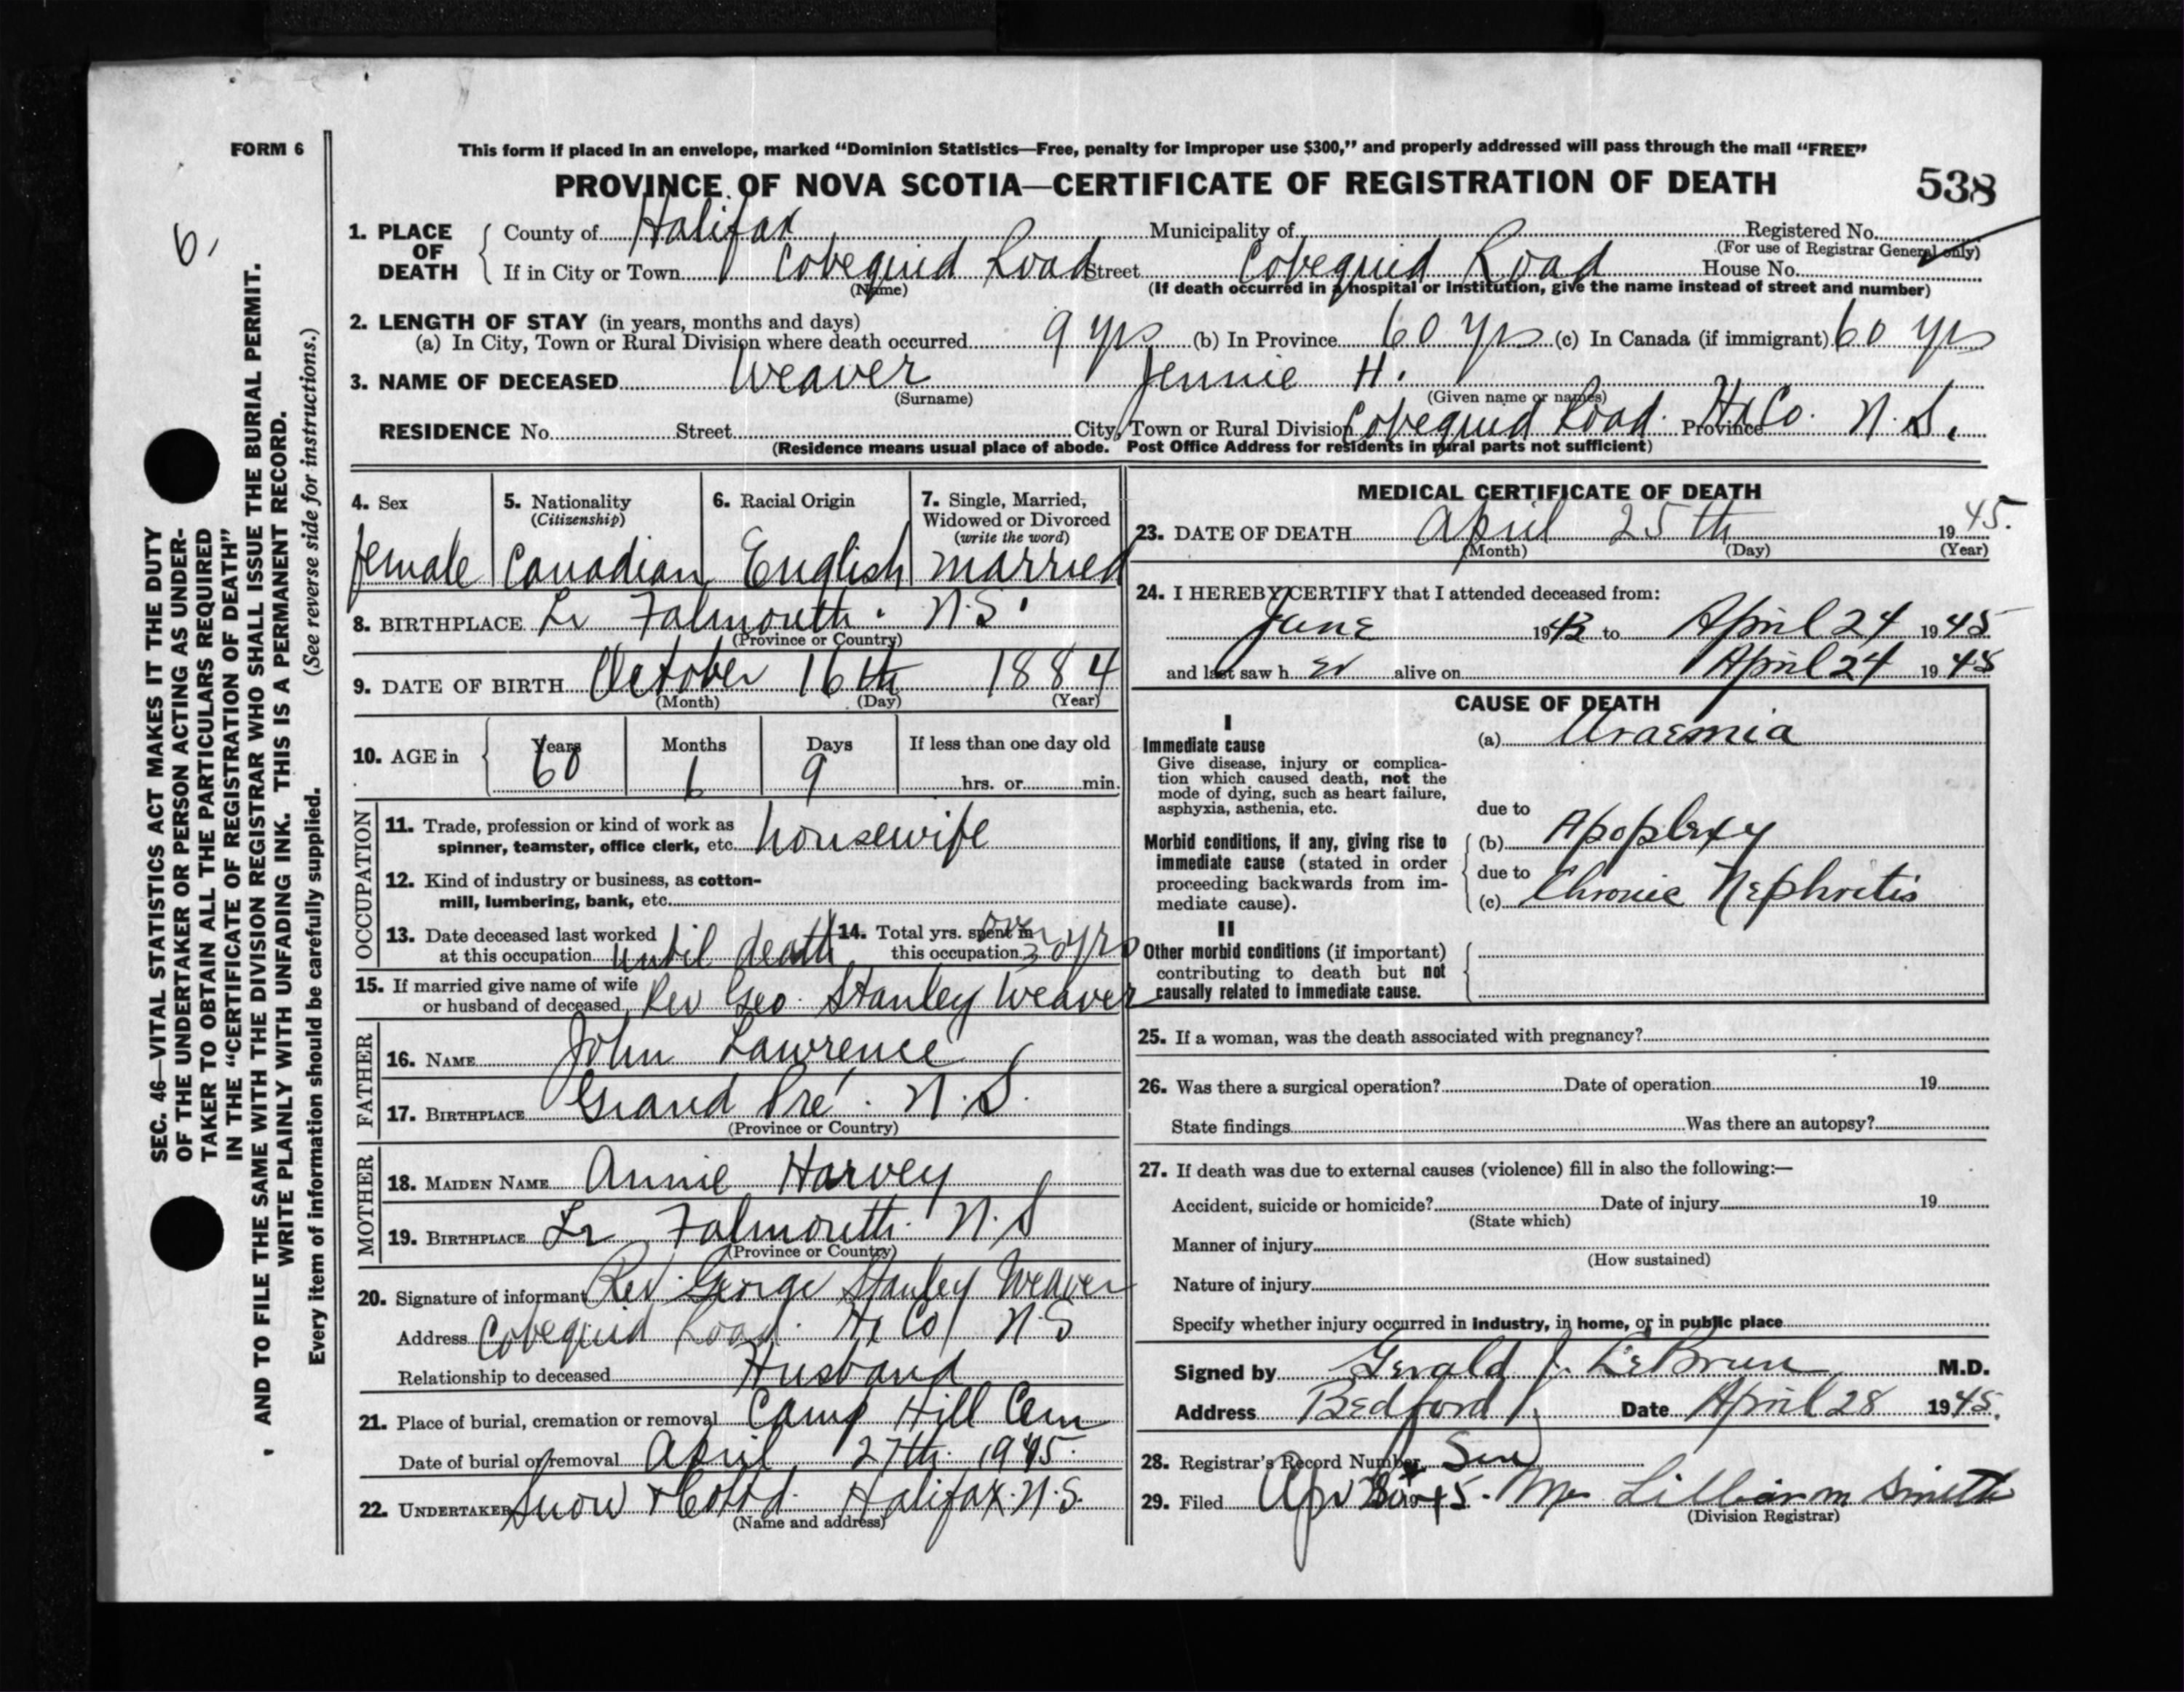 FORM 6
This form if placed in an envelope, marked "Dominion Statistics—Free, penalty for improper use $300," and properly addressed will pass through the mail "FREE"
PROVINCE OF NOVA SCOTIA—CERTIFICATE OF REGISTRATION OF DEATH
538
6,
SEC. 46—VITAL STATISTICS ACT MAKES IT THE DUTY
OF THE UNDERTAKER OR PERSON ACTING AS UNDER-
TAKER TO OBTAIN ALL THE PARTICULARS REQUIRED
IN THE "CERTIFICATE OF REGISTRATION OF DEATH"
AND TO FILE THE SAME WITH THE DIVISION REGISTRAR WHO SHALL ISSUE THE BURIAL PERMIT.
WRITE PLAINLY WITH UNFADING INK. THIS IS A PERMANENT RECORD.
Every item of information should be carefully supplied. (See reverse side for instructions.)
1. PLACE OF DEATH County of Halifax Municipality of Registered No.
(For use of Registrar General only)
If in City or Town Cobequid Road Street Cobequid Road House No.
(Name) (If death occurred in a hospital or institution, give the name instead of street and number)
2. LENGTH OF STAY (in years, months and days)
(a) In City, Town or Rural Division where death occurred 9 yrs (b) In Province 60 yrs (c) In Canada (if immigrant) 60 yrs
3. NAME OF DECEASED Weaver Jennie H.
(Surname) (Given name or names)
RESIDENCE No. Street City, Town or Rural Division Cobequid Road. Province Hx Co. N.S.
(Residence means usual place of abode. Post Office Address for residents in rural parts not sufficient)
4. Sex
female
5. Nationality
(Citizenship)
Canadian
6. Racial Origin
English
7. Single, Married,
Widowed or Divorced
(write the word)
married
8. BIRTHPLACE Lr Falmouth. N.S.
(Province or Country)
9. DATE OF BIRTH October 16th 1884
(Month) (Day) (Year)
10. AGE in Years Months Days If less than one day old
60 6 9 hrs. or min.
OCCUPATION
11. Trade, profession or kind of work as
spinner, teamster, office clerk, etc. housewife
12. Kind of industry or business, as cotton-
mill, lumbering, bank, etc.
13. Date deceased last worked
at this occupation until death
14. Total yrs. spent in
this occupation over 30 yrs
15. If married give name of wife
or husband of deceased Rev Geo. Stanley Weaver
FATHER
16. NAME John Lawrence
17. BIRTHPLACE Grand Pré. N.S.
(Province or Country)
MOTHER
18. MAIDEN NAME Annie Harvey
19. BIRTHPLACE Lr Falmouth. N.S
(Province or Country)
20. Signature of informant Rev. George Stanley Weaver
Address Cobequid Road. Hx Co N.S
Relationship to deceased Husband
21. Place of burial, cremation or removal Camp Hill Cem
Date of burial or removal April 27th 1945.
22. UNDERTAKER Snow & Co Ltd. Halifax. N.S.
(Name and address)
MEDICAL CERTIFICATE OF DEATH
23. DATE OF DEATH April 25th 1945.
(Month) (Day) (Year)
24. I HEREBY CERTIFY that I attended deceased from:
June 1943 to April 24 1945
and last saw her alive on April 24 1945
CAUSE OF DEATH
I
Immediate cause
Give disease, injury or complica-
tion which caused death, not the
mode of dying, such as heart failure,
asphyxia, asthenia, etc.
(a) Uraemia
due to
Morbid conditions, if any, giving rise to
immediate cause (stated in order
proceeding backwards from im-
mediate cause).
(b) Apoplexy
due to
(c) Chronic Nephritis
II
Other morbid conditions (if important)
contributing to death but not
causally related to immediate cause.
25. If a woman, was the death associated with pregnancy?
26. Was there a surgical operation? Date of operation 19
State findings Was there an autopsy?
27. If death was due to external causes (violence) fill in also the following:—
Accident, suicide or homicide? Date of injury 19
(State which)
Manner of injury
(How sustained)
Nature of injury
Specify whether injury occurred in industry, in home, or in public place
Signed by Gerald J. LeBrun M.D.
Address Bedford Date April 28 1945.
28. Registrar's Record Number
29. Filed Apr 1945. Lillian M Smith
(Division Registrar)